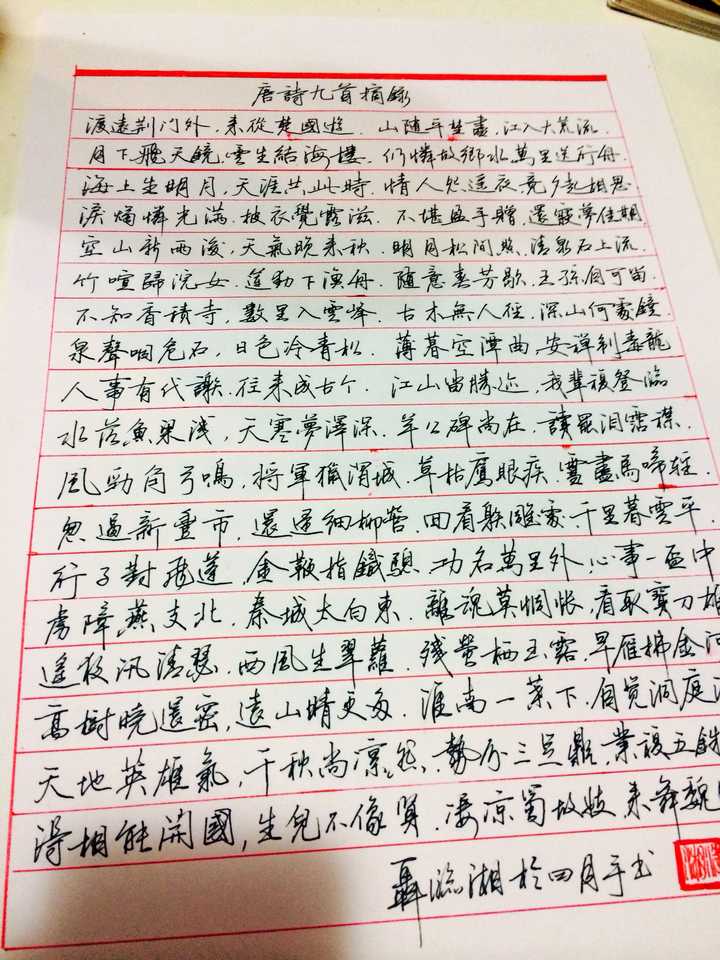 唐詩九首摘錄
渡遠荆门外，来從楚國遊．山随平埜盡，江入大荒流．
月下飛天鏡，雲生結海樓．仍憐故鄉水，萬里送行舟．
海上生明月，天涯共此時．情人怨遥夜，竟夕起相思
淚燭憐光满．披衣覺露滋．不堪盈手贈，還寢夢佳期．
空山新雨後，天氣晚来秋．明月松间照，清泉石上流．
竹喧歸浣女．莲動下漁舟．隨意春芳歇．王孫自可留．
不知香積寺，數里入雲峰．古木無人徑．深山何處鐘．
泉聲咽危石，日色冷青松．薄暮空潭曲，安禅制毒龍
人事有代謝．往来成古今．江山留勝迹，我輩復登临
水落魚梁浅，天寒夢澤深．羊公碑尚在．讀罷泪霑襟．
風勁角弓鳴，将軍獵渭城．草枯鷹眼疾．雪盡馬啼轻．
忽過新豊市，還遥細柳營．回看射雕處．千里暮雲平．
行子對飛蓬，金鞭指鐵驄．功名萬里外，心事一盃中
虜障燕支北，秦城太白東．離魂莫惆怅，看取寶刀雄
遥夜汎清瑟．西風生翠蘿．残萤栖玉露．早雁拂金河
高樹曉還密，遠山晴更多．淮南一葉下．自覚洞庭
天地英雄氣，千秋尚凛然．勢分三足鼎，業復五銖
得相能開國，生兒不像賢．凄凉蜀故妓，来舞魏
聶临湖於四月手书